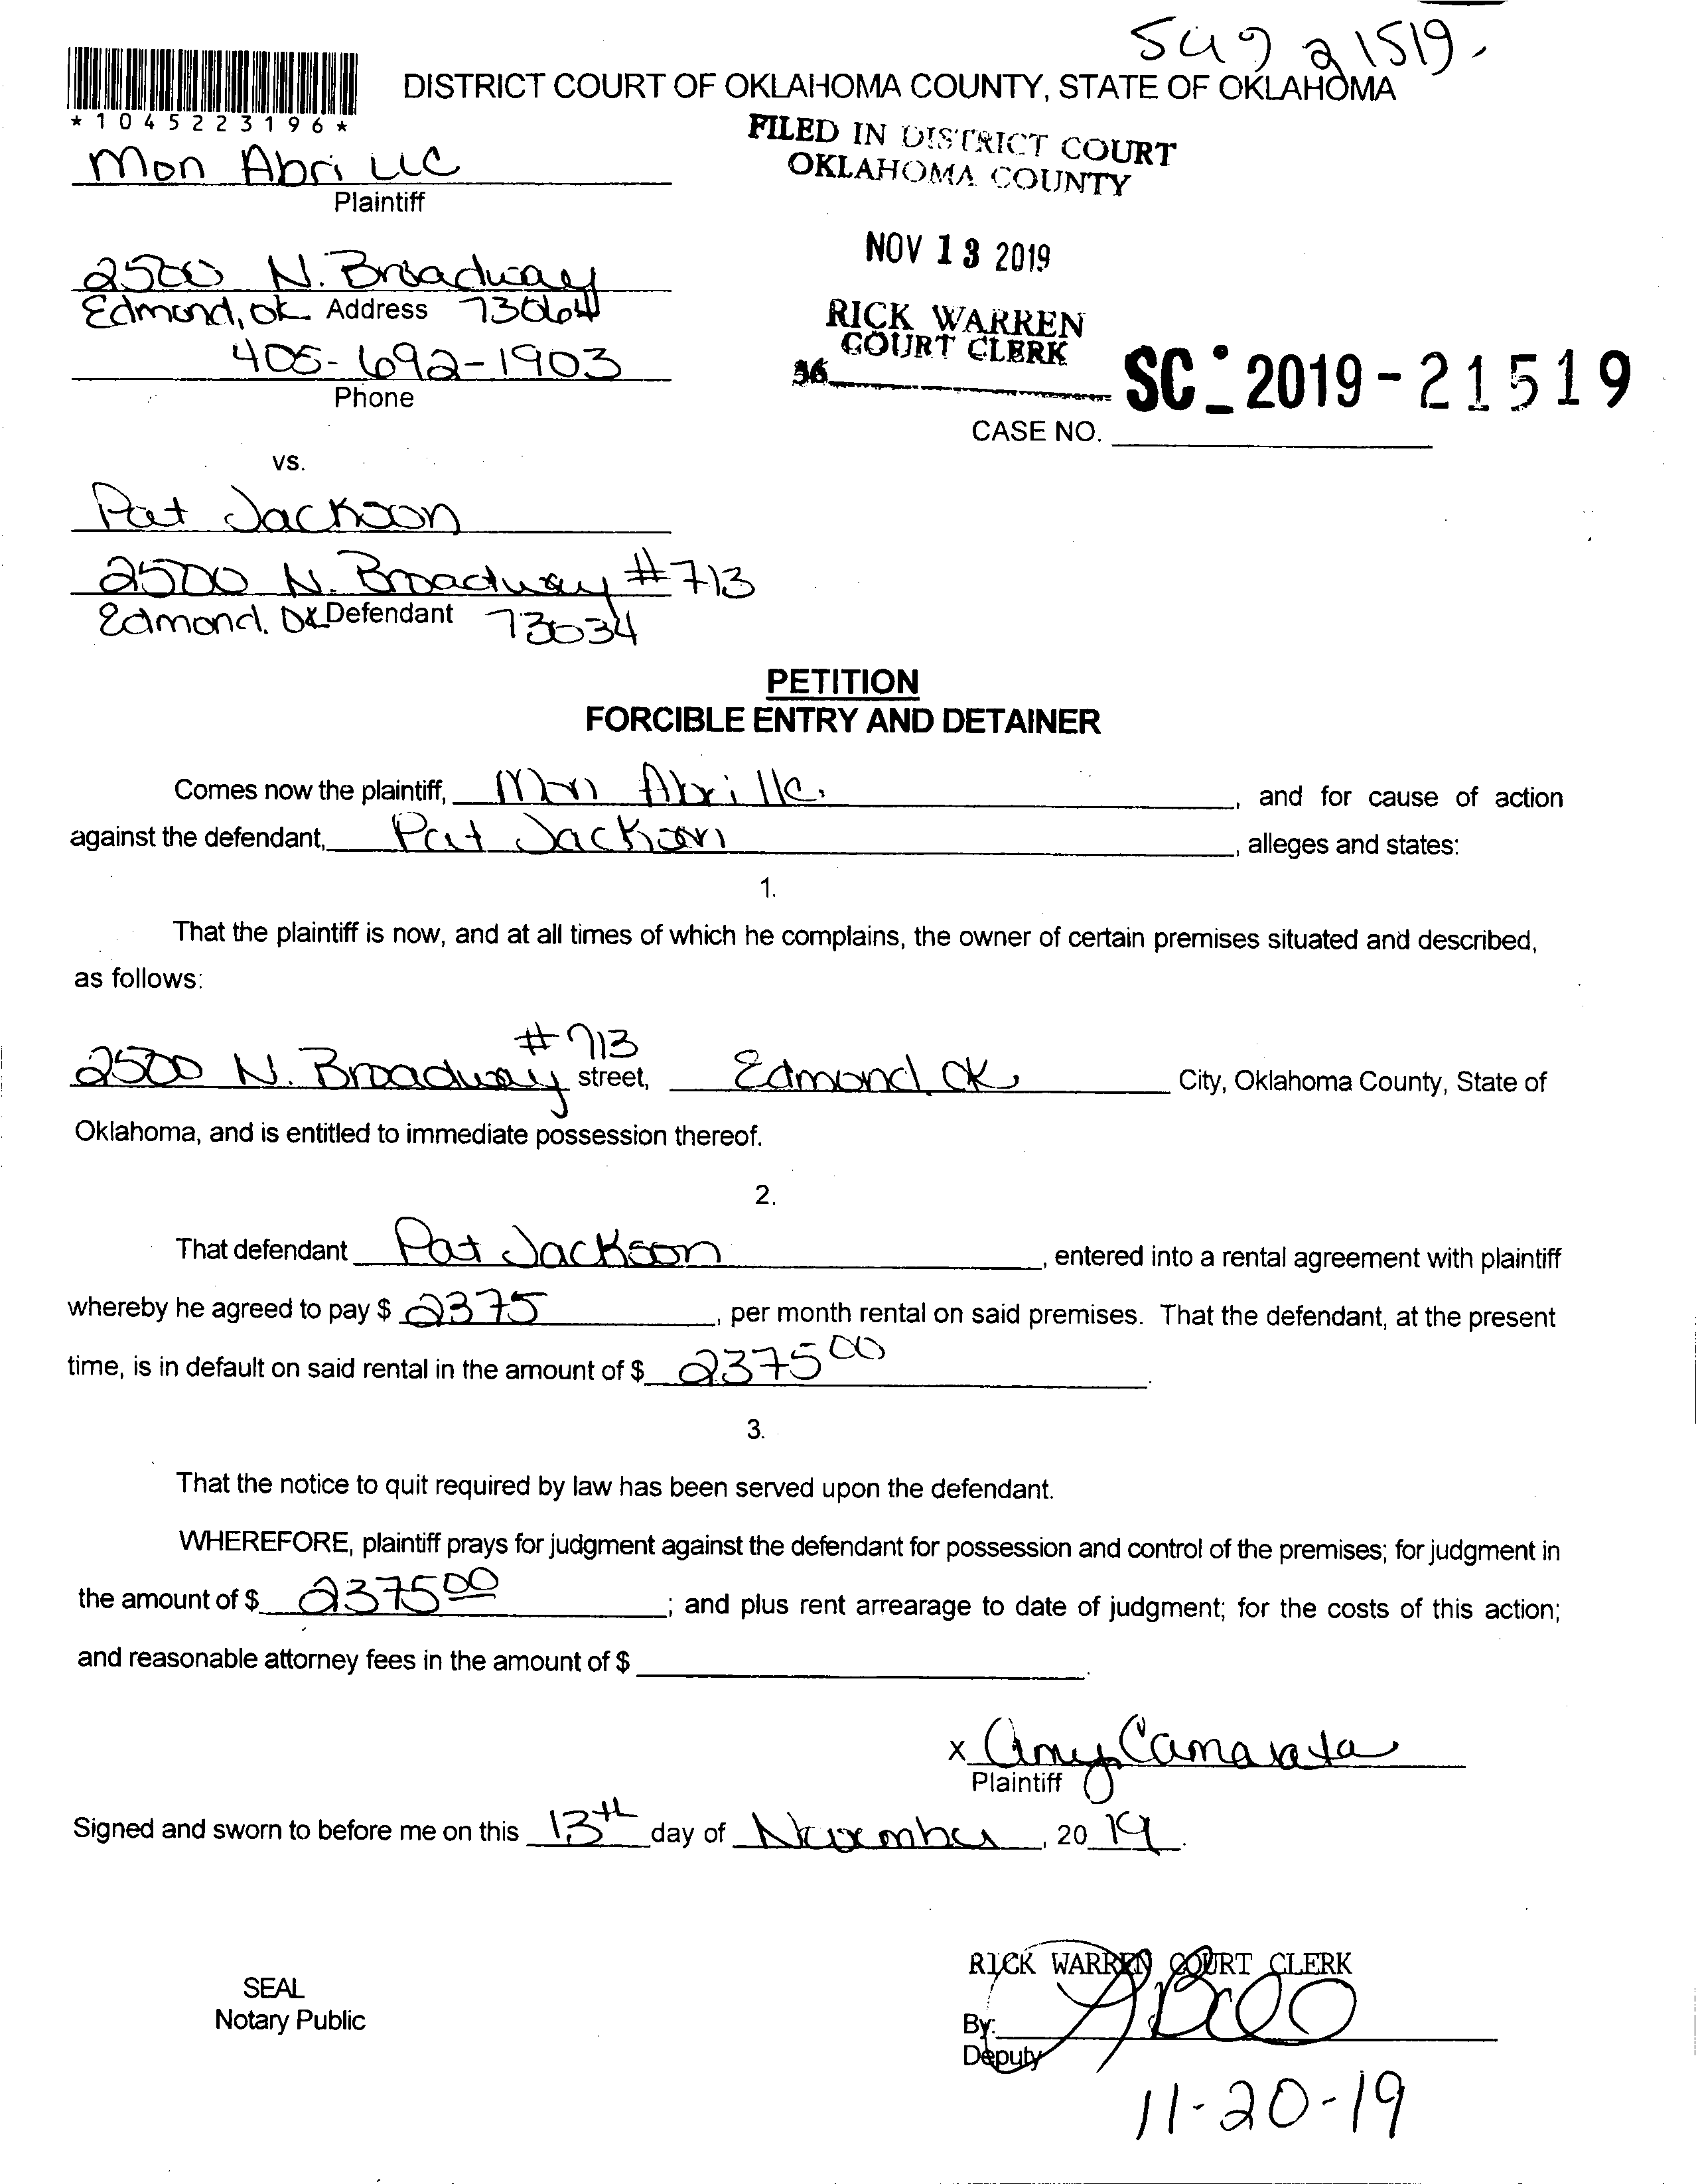 DISTRICT COURT OF OKLAHOMA COUNTY, STATE OF OKLAHOMA
*1045223196*
FILED IN DISTRICT COURT
OKLAHOMA COUNTY
Mon Abri LLC
Plaintiff
NOV 13 2019
2500 N. Broadway
Edmond, OK Address
RICK WARREN
COURT CLERK
405-692-1903
Phone
SC-2019-21519
CASE NO.
vs.
Pat Jackson
2500 N. Broadway #713
Edmond, OK Defendant 73034
PETITION
FORCIBLE ENTRY AND DETAINER
Comes now the plaintiff, Mon Abri llc. , and for cause of action
against the defendant, Pat Jackson , alleges and states:
1.
That the plaintiff is now, and at all times of which he complains, the owner of certain premises situated and described,
as follows:
#713
2500 N. Broadway street, Edmond, OK City, Oklahoma County, State of
Oklahoma, and is entitled to immediate possession thereof.
2.
That defendant Pat Jackson , entered into a rental agreement with plaintiff
whereby he agreed to pay $ 2375 , per month rental on said premises. That the defendant, at the present
time, is in default on said rental in the amount of $ 2375 00 .
3.
That the notice to quit required by law has been served upon the defendant.
WHEREFORE, plaintiff prays for judgment against the defendant for possession and control of the premises; for judgment in
the amount of $ 2375 00 ; and plus rent arrearage to date of judgment; for the costs of this action;
and reasonable attorney fees in the amount of $ .
x Amy Camarata
Plaintiff
Signed and sworn to before me on this 13th day of November , 20 19 .
RICK WARREN COURT CLERK
SEAL
Notary Public
By:
Deputy
11-20-19